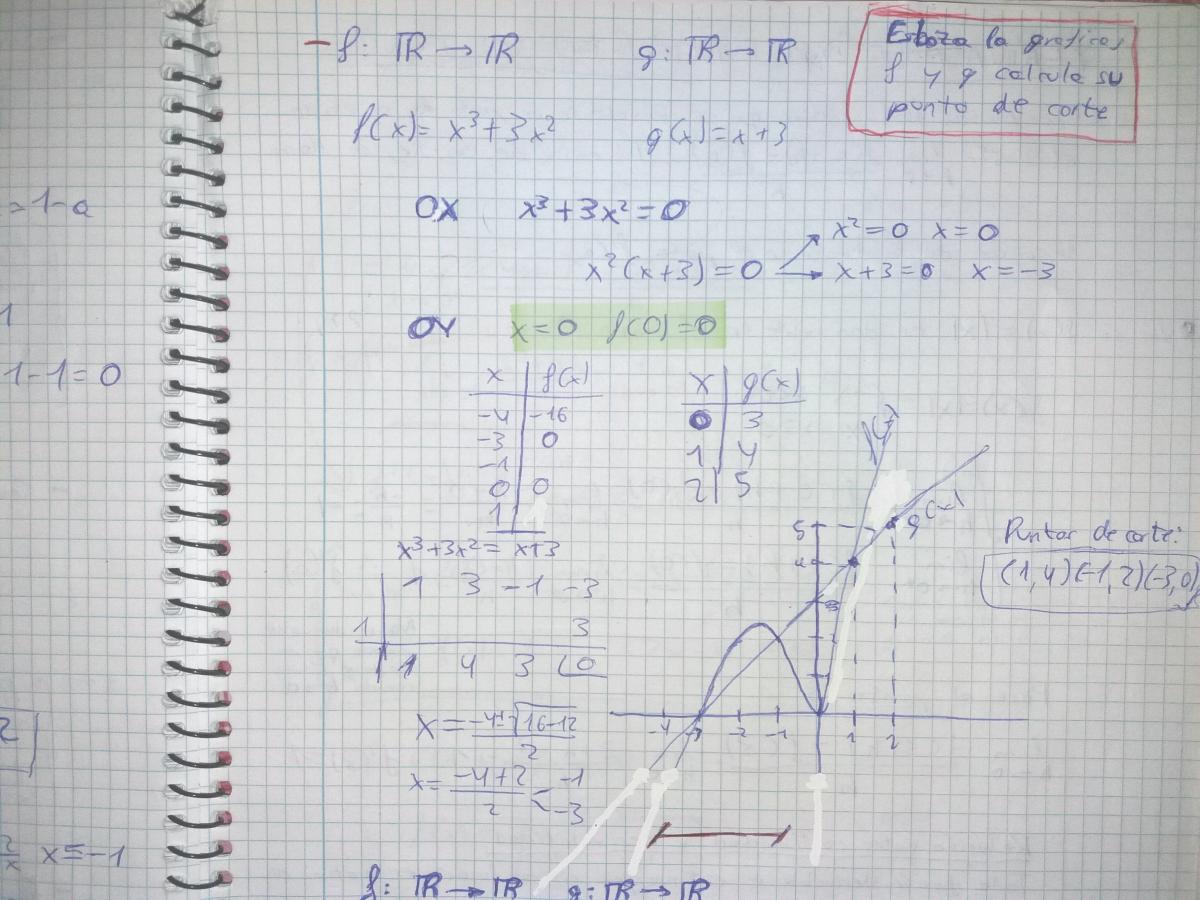 - f: ℝ → ℝ g: ℝ → ℝ
Esboza la graficas
f y g calcula su
punto de corte
f(x) = x³ + 3x² g(x) = x + 3
= 1 - a
OX x³ + 3x² = 0
x² = 0 x = 0
x² (x + 3) = 0 x + 3 = 0 x = -3
1
OY x = 0 f(0) = 0
1 - 1 = 0
x | f(x)
-4 | -16
-3 | 0
-1 |
0 | 0
1 |
x | g(x)
0 | 3
1 | 4
2 | 5
x³ + 3x² = x + 3
1 3 -1 -3
1 3
1 4 3 0
x = -4 ± √16 - 12
2
x = -4 + 2 -1
2 -3
g(x)
5
4
3
-4 -3 -2 -1 1 2
Puntos de corte:
(1, 4) (-1, 2) (-3, 0)
2
2/x x = -1
f: ℝ → ℝ g: ℝ → ℝ